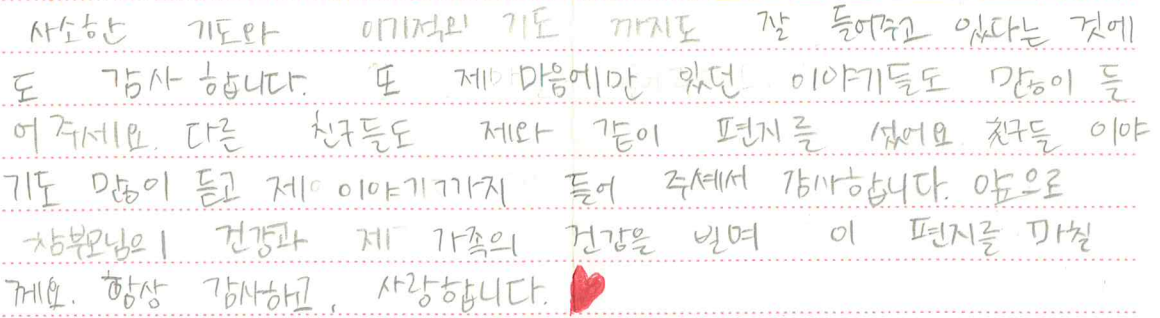 사소한 기도와 이기적인 기도 까지도 잘 들어주고 있다는 것에
도 감사 합니다. 또 제 마음에만 있던 이야기들도 많이 들
어 주세요. 다른 친구들도 제와 같이 편지를 썼어요 친구들 이야
기도 많이 듣고 제 이야기까지 들어 주셔서 감사합니다. 앞으로
건강과 제 가족의 건강을 빌며 이 편지를 마칠
께요. 항상 감사하고, 사랑합니다.